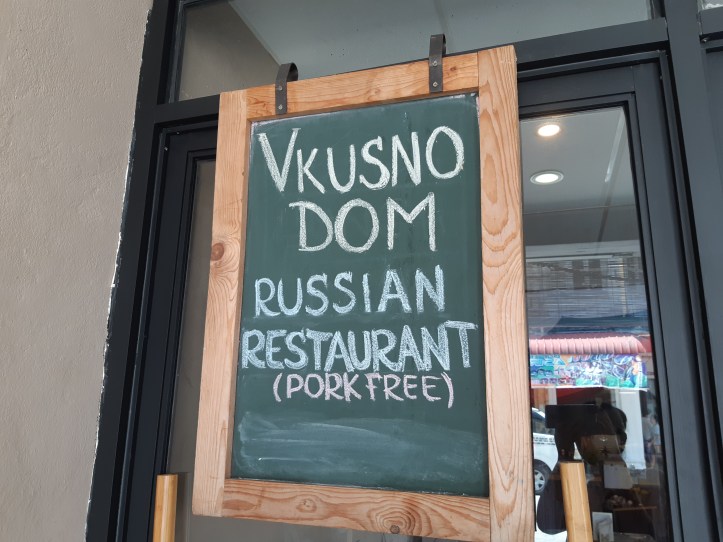 VKUSNO
DOM
RUSSIAN
RESTAURANT
(PORK FREE)